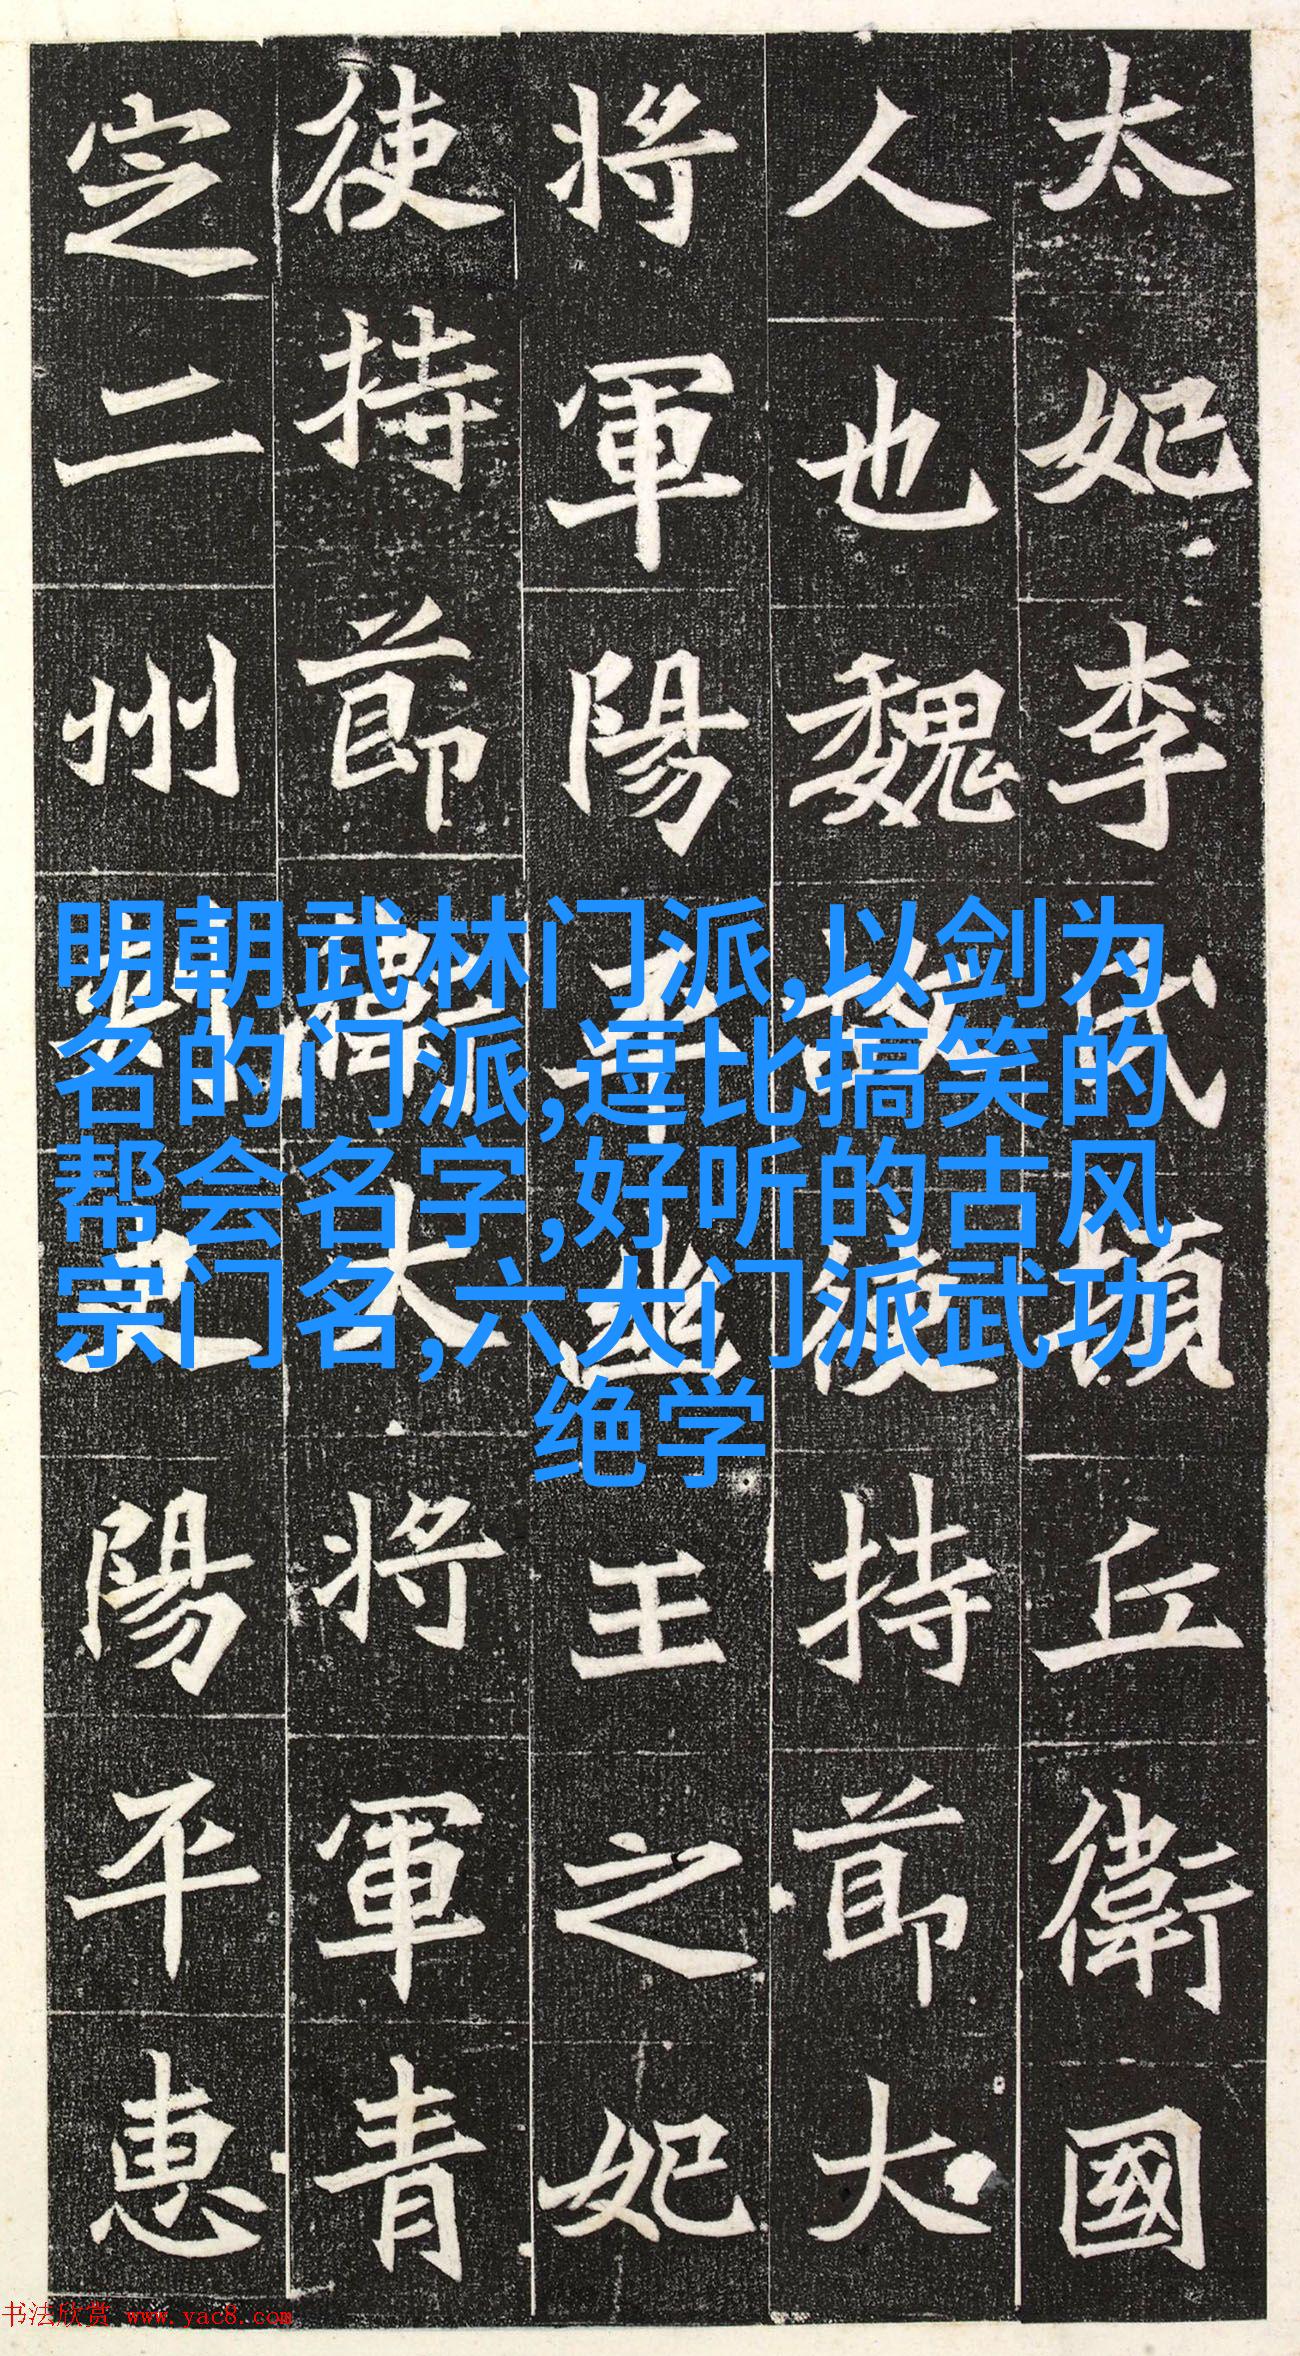 太妃李氏頓丘衛國
人也魏故使持節大
將軍陽平幽王之妃
使持節衛大將軍青
定二州刺史陽平惠
明朝武林门派,以剑为
名的门派,逗比搞笑的
帮会名字,好听的古风
宗门名,六大门派武功
绝学
书法欣赏 www.yac8.com